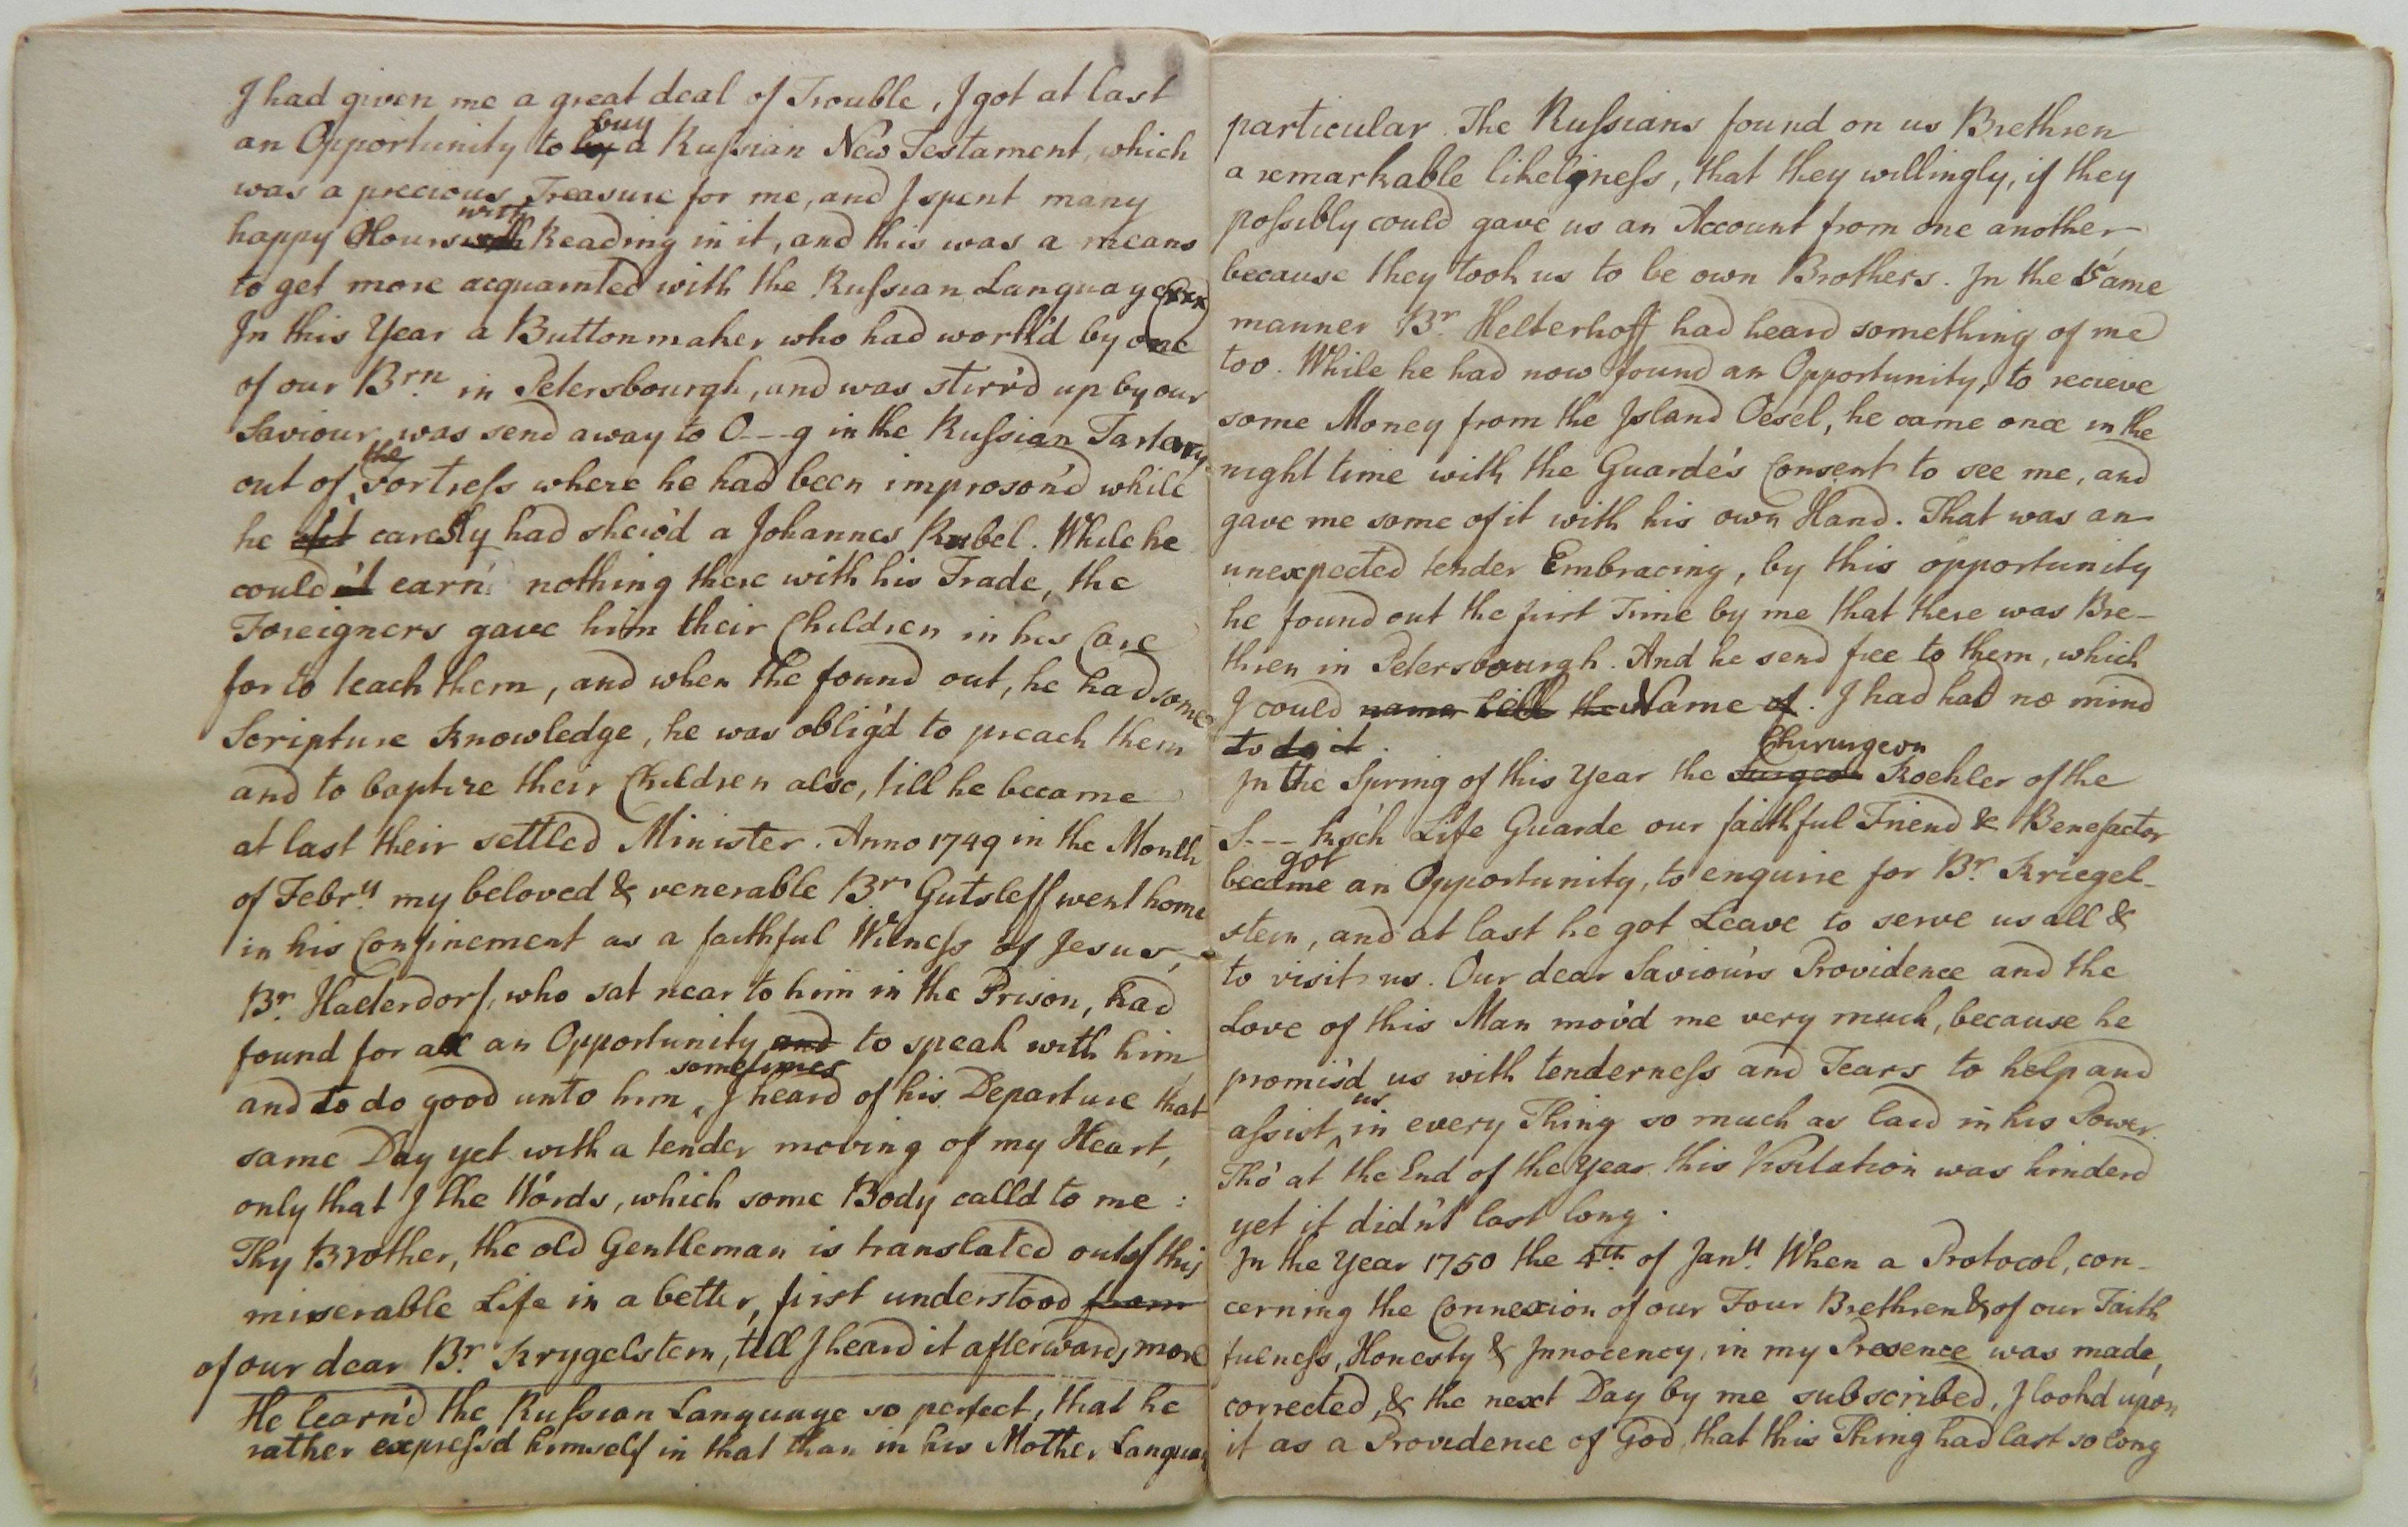 I had given me a great deal of Trouble, I got at last
an Opportunity to buy a Russian New Testament, which
was a precious Treasure for me, and I spent many
happy Hours with Reading in it, and this was a means
to get more acquainted with the Russian Language (xxx)
In this Year a Buttonmaker who had work'd by one
of our Brn. in Petersbourgh, and was stirr'd up by our
Saviour was send away to O---g in the Russian Tartary
out of the Fortress where he had been imprison'd while
he caresly had shew'd a Johannes Rubel. While he
could earn nothing there with his Trade, the
Foreigners gave him their Children in his Care
for to teach them, and when the found out, he had some
Scripture Knowledge, he was oblig'd to preach them
and to baptize their Children also, till he became
at last their settled Minister. Anno 1749 in the Month
of Febry. my beloved & venerable Br. Gutsleff went home
in his Confinement as a faithful Witness of Jesus,
Br. Haelterdorf, who sat near to him in the Prison, had
found for all an Opportunity and to speak with him
and to do good unto him sometimes, I heard of his Departure that
same Day yet with a tender moving of my Heart,
only that I the Words, which some Body calld to me:
Thy Brother, the old Gentleman is translated out of this
miserable Life in a better, first understood from
of our dear Br. Krygelstein, till I heard it afterwards more
He learn'd the Russian Language so perfect, that he
rather express'd himself in that than in his Mother Language
particular. The Russians found on us Brethren
a remarkable likeligness, that they willingly, if they
possibly could gave us an Account from one another
because they took us to be own Brothers. In the same
manner Br. Helterhoff had heard something of me
too. While he had now found an Opportunity, to recieve
some Money from the Island Oesel, he came once in the
night time with the Guarde's Consent to see me, and
gave me some of it with his own Hand. That was an
unexpected tender Embracing, by this opportunity
he found out the first Time by me that there was Bre-
thren in Petersbourgh. And he send free to them, which
I could name tell the Name of. I had had no mind
to do it.
In the Spring of this Year the Surgeon Chirurgeon Koehler of the
S--- hsch Life Guarde our faithful Friend & Benefactor
became got an Opportunity, to enquire for Br. Kriegel-
stein, and at last he got Leave to serve us all &
to visit us. Our dear Saviour's Providence and the
Love of this Man mov'd me very much, because he
promis'd us with tenderness and Tears to help and
assist us in every Thing so much as laid in his Power.
Tho' at the End of the Year this Visitation was hinderd
yet it didn't last long.
In the Year 1750 the 4th. of Jany. When a Protocol, con-
cerning the Connexion of our Four Brethren & of our Faith
fulness, Honesty & Innocency, in my Presence was made,
corrected, & the next Day by me subscribed, I look'd upon
it as a Providence of God, that this Thing had last so long